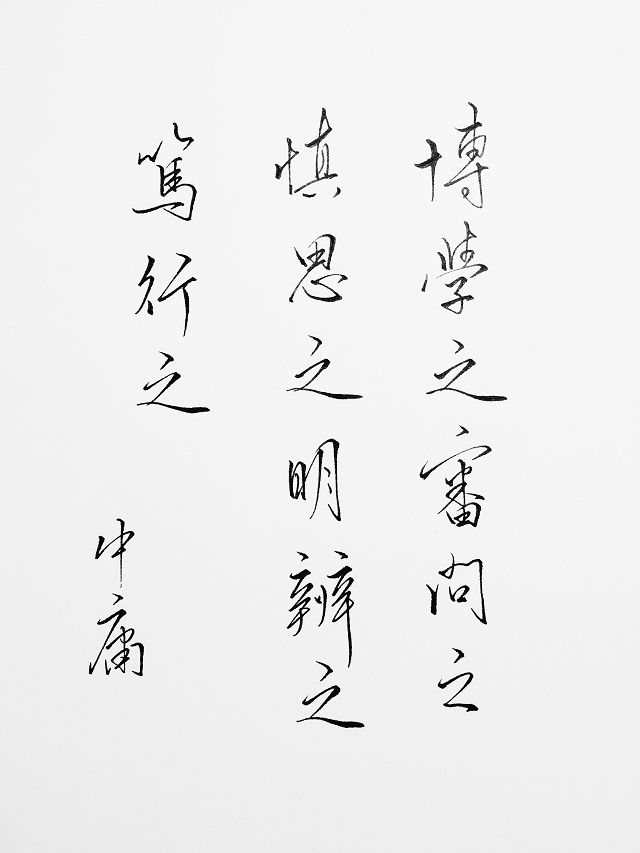 博學之審問之
慎思之明辨之
篤行之
中庸